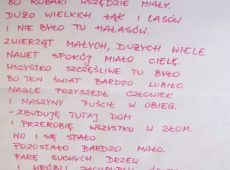 BO ROBAKI WSZĘDZIE MIAŁY.
DUŻO WIELKICH ŁĄK I LASÓW
I NIE BYŁO TU HAŁASÓW.
ZWIERZĄT MAŁYCH, DUŻYCH WIELE
NAWET SPOKÓJ MIAŁO CIELĘ.
WSZYSTKO SZCZĘŚLIWE TU BYŁO
BO TEN ŚWIAT BARDZO LUBIŁO.
NAGLE PRZYSZEDŁ CZŁOWIEK
I MASZYNY PUŚCIŁ W OBIEG.
- ZBUDUJĘ TUTAJ DOM
I PRZEROBIĘ WSZYSTKO W ZŁOM.
NO I SIĘ STAŁO
POZOSTAŁO BARDZO MAŁO.
PARĘ SUCHYCH DRZEW
I WRÓBLI